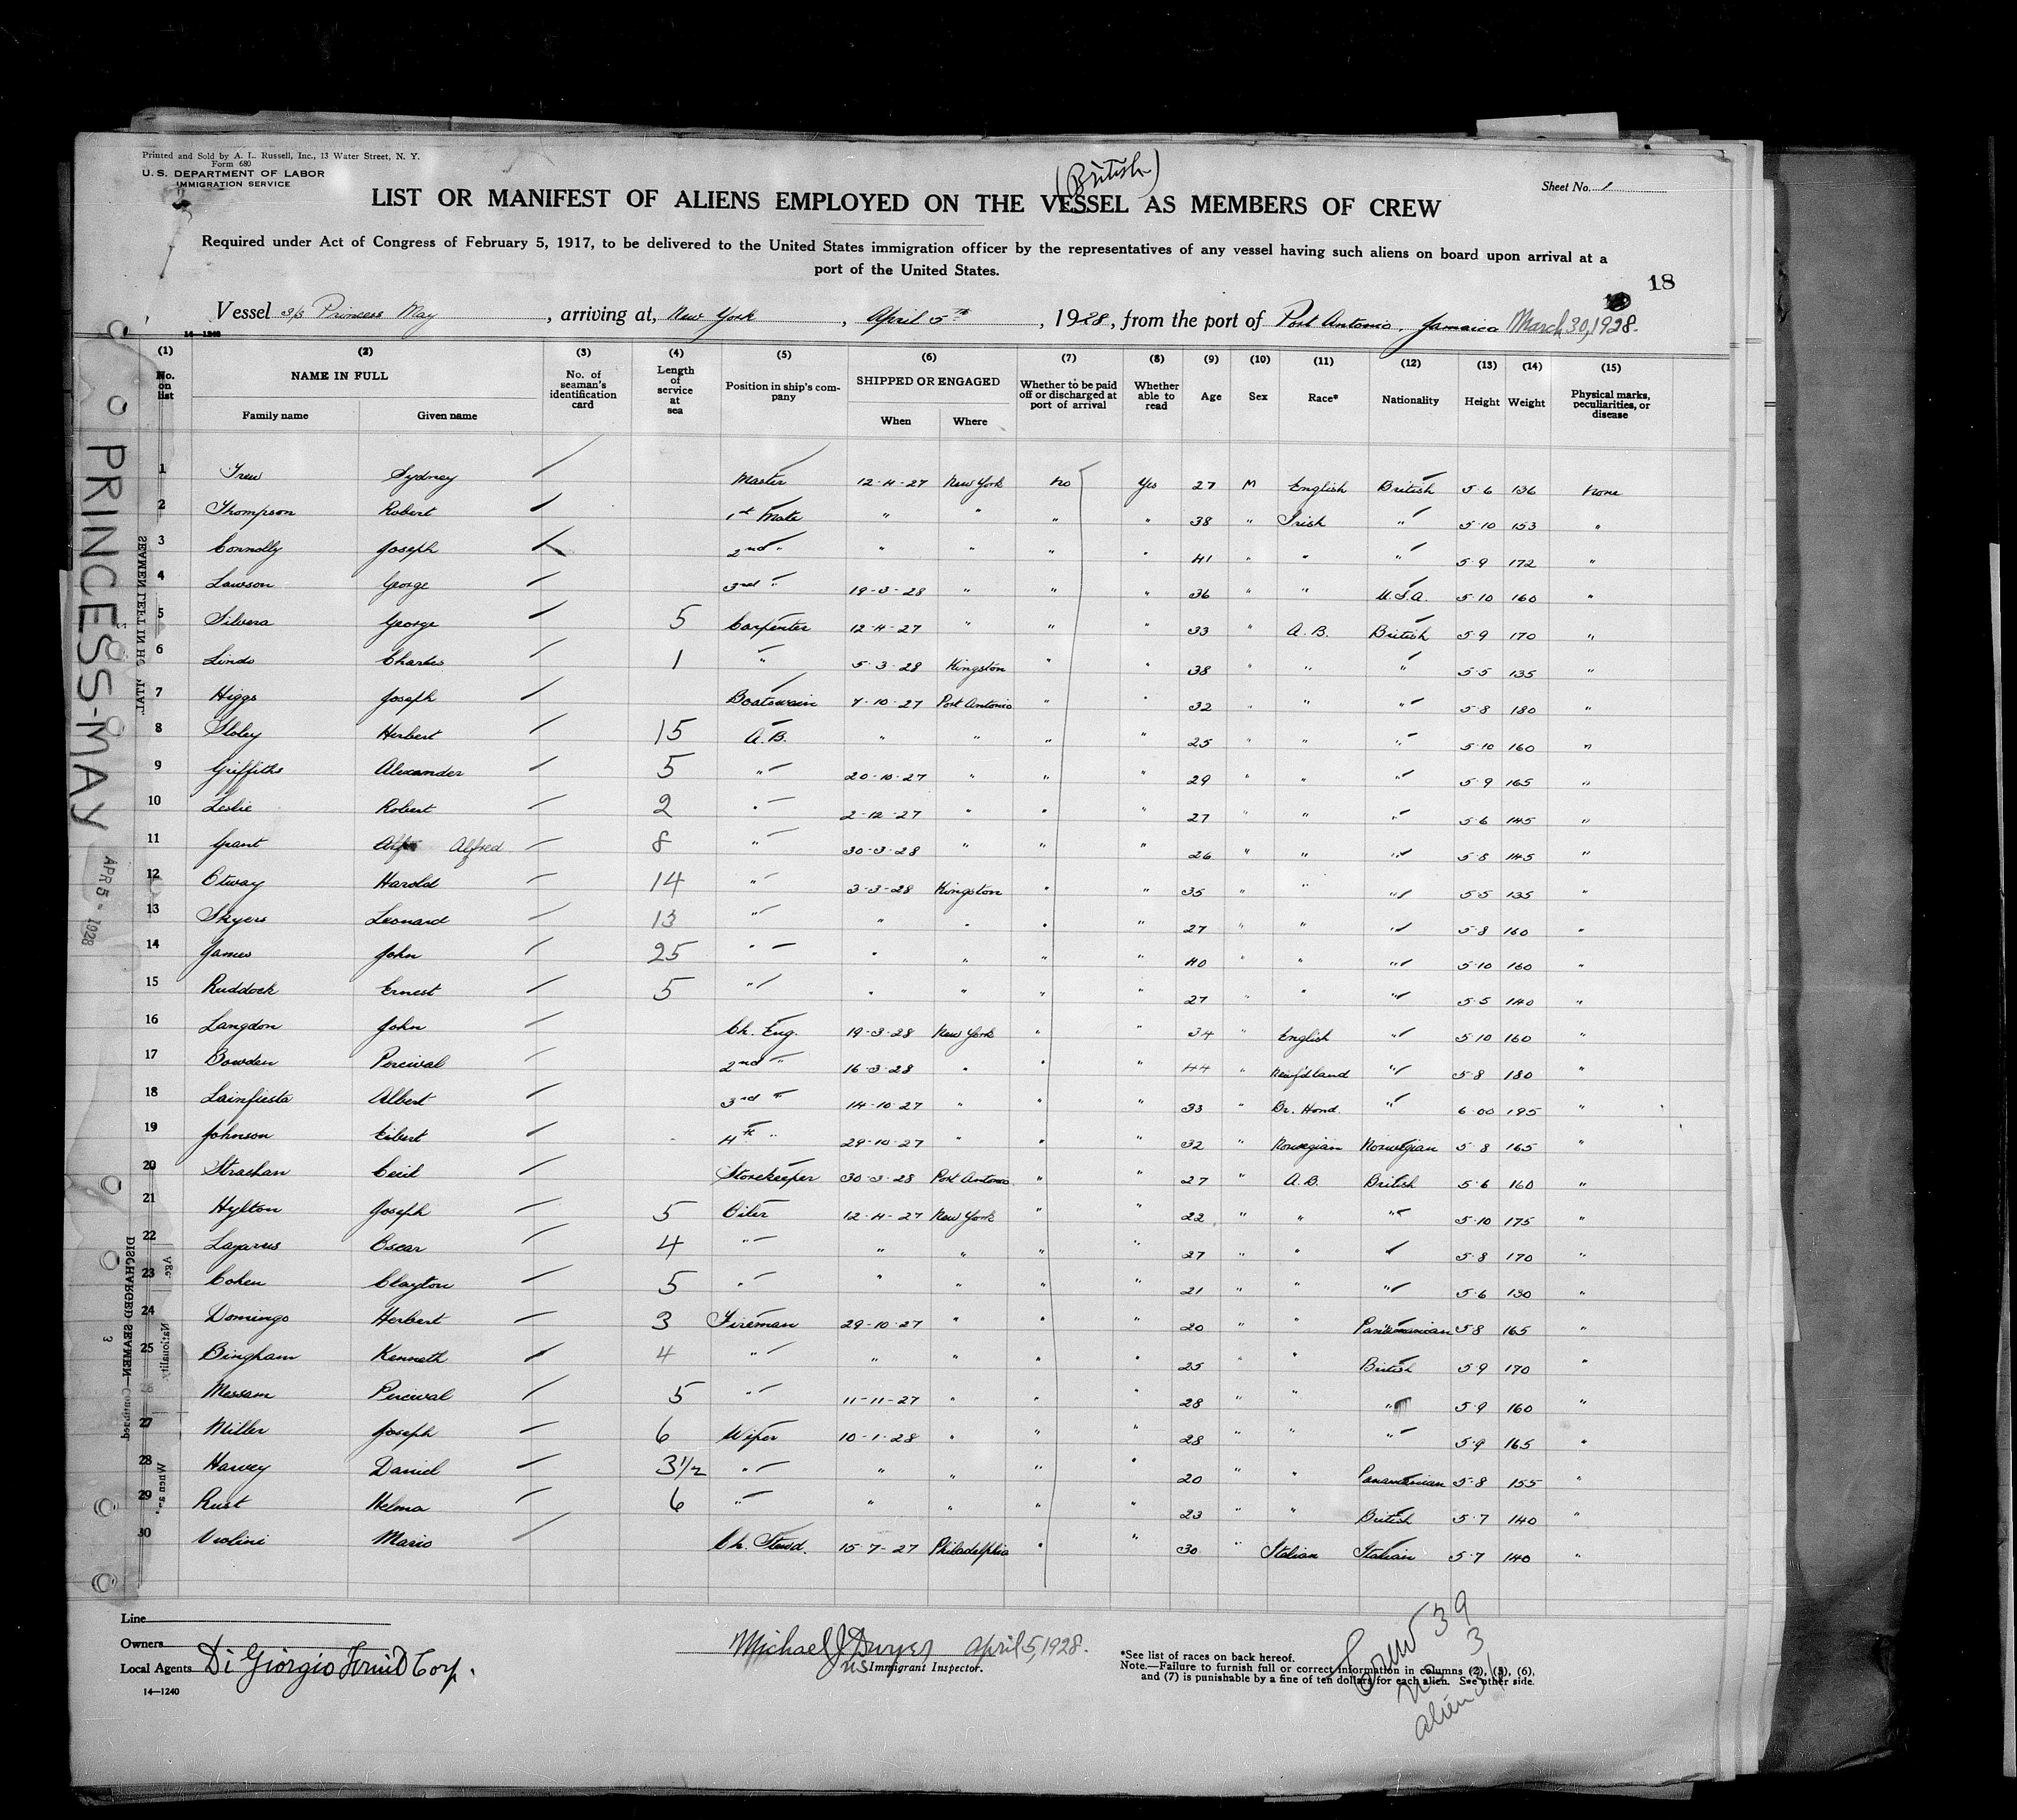 Printed and Sold by A. L. Russell, Inc., 13 Water Street, N. Y.
Form 680
U. S. DEPARTMENT OF LABOR
IMMIGRATION SERVICE
(British)
Sheet No. 1
LIST OR MANIFEST OF ALIENS EMPLOYED ON THE VESSEL AS MEMBERS OF CREW
Required under Act of Congress of February 5, 1917, to be delivered to the United States immigration officer by the representatives of any vessel having such aliens on board upon arrival at a
port of the United States.
18
Vessel S/S Princess May, arriving at, New York, April 5th, 1928, from the port of Port Antonio, Jamaica March 30, 1928.
14—1240
(1) (2) (3) (4) (5) (6) (7) (8) (9) (10) (11) (12) (13) (14) (15)
No. on list NAME IN FULL Family name Given name No. of seaman's identification card Length of service at sea Position in ship's company SHIPPED OR ENGAGED When Where Whether to be paid off or discharged at port of arrival Whether able to read Age Sex Race* Nationality Height Weight Physical marks, peculiarities, or disease
1 Trew Sydney Master 12-4-27 New York No Yes 27 M English British 5 6 136 None
2 Thompson Robert 1st Mate " " " " 38 " Irish " 5 10 153 "
3 Connolly Joseph 2nd " " " " " 41 " " " 5 9 172 "
4 Lawson George 3rd " 19-3-28 " " " 36 " " U.S.A. 5 10 160 "
5 Silvera George 5 Carpenter 12-4-27 " " " 33 " A.B. British 5 9 170 "
6 Lindo Charles 1 " 5-3-28 Kingston " " 38 " " " 5 5 135 "
7 Higgs Joseph Boatswain 7-10-27 Port Antonio " " 32 " " " 5 8 180 "
8 Herbert 15 A.B. " " " " 25 " " " 5 10 160 "
9 Griffiths Alexander 5 " 20-10-27 " " " 29 " " " 5 9 165 "
10 Leslie Robert 2 " 2-12-27 " " " 27 " " " 5 6 145 "
11 Grant Alfred 8 " 30-3-28 " " " 26 " " " 5 8 145 "
12 Otway Harold 14 " 3-3-28 Kingston " " 35 " " " 5 5 135 "
13 Skyers Leonard 13 " " " " " 27 " " " 5 8 160 "
14 James John 25 " " " " " 40 " " " 5 10 160 "
15 Ruddock Ernest 5 " " " " " 27 " " " 5 5 140 "
16 Langdon John Ch. Eng. 19-3-28 New York " " 34 " English " 5 10 160 "
17 Bowden Percival 2nd " 16-3-28 " " " 44 " Newf'dland " 5 8 180 "
18 Lainfiesta Albert 3rd " 14-10-27 " " " 33 " Br. Hond. " 6 00 195 "
19 Johnson Eibert 4th " 29-10-27 " " " 32 " Norwegian Norwegian 5 8 165 "
20 Strachan Cecil Storekeeper 30-3-28 Port Antonio " " 27 " A.B. British 5 6 160 "
21 Hylton Joseph 5 Oiler 12-4-27 New York " " 22 " " " 5 10 175 "
22 Lazarus Oscar 4 " " " " " 27 " " 5 8 170 "
23 Cohen Clayton 5 " " " " " 21 " " " 5 6 130 "
24 Domingo Herbert 3 Fireman 29-10-27 " " " 20 " " Panamanian 5 8 165 "
25 Bingham Kenneth 4 " " " " " 25 " " British 5 9 170 "
26 Messam Percival 5 " 11-11-27 " " " 28 " " " 5 9 160 "
27 Miller Joseph 6 Wiper 10-1-28 " " " 28 " " " 5 9 165 "
28 Harvey Daniel 3½ " " " " " 20 " " Panamanian 5 8 155 "
29 Rust Helma 6 " " " " " 23 " " British 5 7 140 "
30 Violini Mario Ch. Stewd. 15-7-27 Philadelphia " " 30 " Italian Italian 5 7 140 "
Line
Owners
Local Agents Di Giorgio Fruit Corp.
14—1240
Michael J Dwyer April 5, 1928.
US Immigrant Inspector.
*See list of races on back hereof.
Note.—Failure to furnish full or correct information in columns (2), (3), (6),
and (7) is punishable by a fine of ten dollars for each alien. See other side.
Crew 39
US 3
alien 36
PRINCESS-MAY
APR 5 - 1928
SEAMEN LEFT IN HOSPITAL
DISCHARGED SEAMEN—Continued
3
Nationality